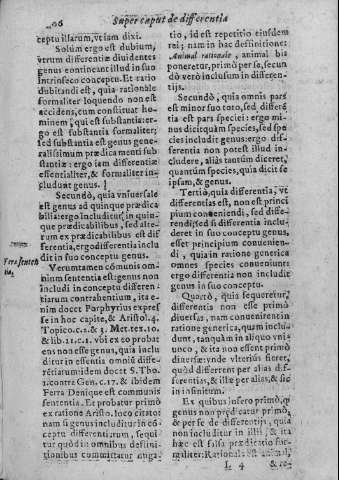 Super caput de differentia
ceptu illarum, vt iam dixi.
Solùm ergo est dubium,
vtrum differentiæ diuidentes
genus contineant illud in suo
intrinseco conceptu. Et ratio
dubitandi est, quia rationale
formaliter loquendo non est
accidens, cum constituat ho-
minem, qui est substantia: er-
go est substantia formaliter;
sed substantia est genus gene-
ralissimum prædicamenti sub-
stantiæ: ergo iam differentiæ
essentialiter, & formaliter in-
cludunt genus.
Secundò, quia vniuersale
est genus ad quinque prædica-
bilia: ergo includitur in quin-
que prædicabilibus, sed alte-
rum ex prædicabilibus est dif-
ferentia, ergo differentia inclu
dit in suo conceptu genus.
Veruntamen cõmunis om-
nium sententia est: genus non
includi in conceptu differen-
tiarum contrahentium, ita e-
nim docet Porphyrius expres
se in hoc capite, & Aristot. 4.
Topico. c. 2. & 3. Met. tex. 10.
& lib. 11. c. 1. vbi ex eo probat
ens non esse genus, quia inclu
ditur in essentia omniũ diffe-
rẽtiarum: idem docet S. Tho.
1. contra Gen. c. 17. & ibidem
Ferra Denique est communis
sententia. Et probatur primò
ex ratione Aristo. loco citato:
nam si genus includitur in cõ-
ceptu differentiarum, sequi
tur quòd in omnibus defini-
tionibus committatur nuga-
Ferra senten
tia.
tio, id est repetitio eiusdem
rei; nam in hac definitione:
Animal rationale, animal bis
poneretur, primò per se, secun
dò verò inclusum in differen-
tijs.
Secundò, quia omnis pars
est minor suo toto, sed differẽ
tia est pars speciei: ergo mi-
nus dicit quàm species, sed spe
cies includit genus: ergo dif-
ferentia non potest illud in-
cludere, aliàs tantùm diceret,
quantùm species, quia dicit se
ipsam, & genus.
Tertiò, quia differentia, vt
differentia est, non est princi
pium conueniendi, sed diffe-
rendi: sed si differentia include
ret in suo conceptu genus,
esset principium conuenien-
di, quia in ratione generica
omnes species conueniunt:
ergo differentia non includit
genus in suo conceptu.
Quartò, quia sequeretur,
differentias non esse primò
diuersas, nam conuenirent in
ratione generica, quam inclu-
dunt, tanquàm in aliquo vni-
uoco, & ita non essent primò
diuersæ: vnde vlterius fieret,
quòd different per alias dif-
ferentias, & illæ per alias, & sic
in infinitum.
Ex quibus infero primò, q̃
genus non prædicatur primò,
& per se de differentijs, quia
non includitur in illis, & ita
hæc est falsa prædicatio for-
maliter: Rationale est animal,
L 4